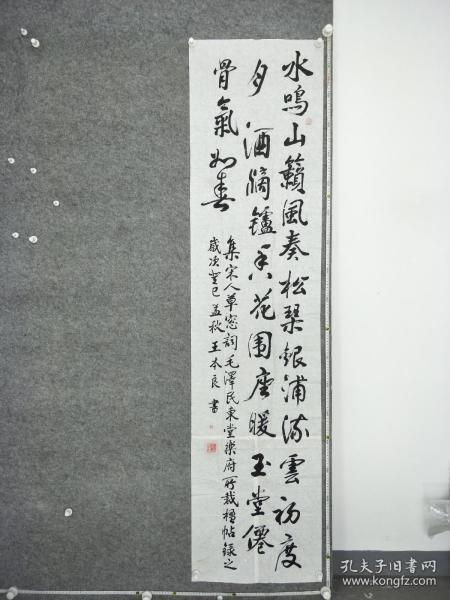 水鳴山籟風奏松琴銀浦流雲初度
夕酒滴鑪香花围座暖玉堂僊
骨氣如春
集宋人草窓詞毛澤民東堂樂府所裁楹帖録之
歲次癸巳孟秋王本良書
孔夫子旧书网
www.kongfz.com